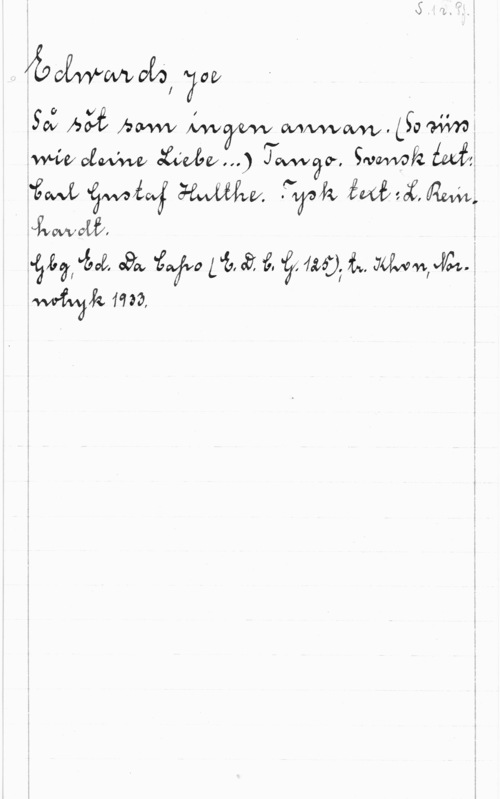 S. 1 r. Pf.
Edwards, Joe
Så söt som ingen annan. (So süss
wie deine Liebe...) Tango. Svensk text:
Carl Gustaf Hulthe. Tysk text: L. Rein-
hardt.
Gbg, Ed. Da Capo (E. D. C. G. 125); tr. Khvn, Nor-
notryk 1933.